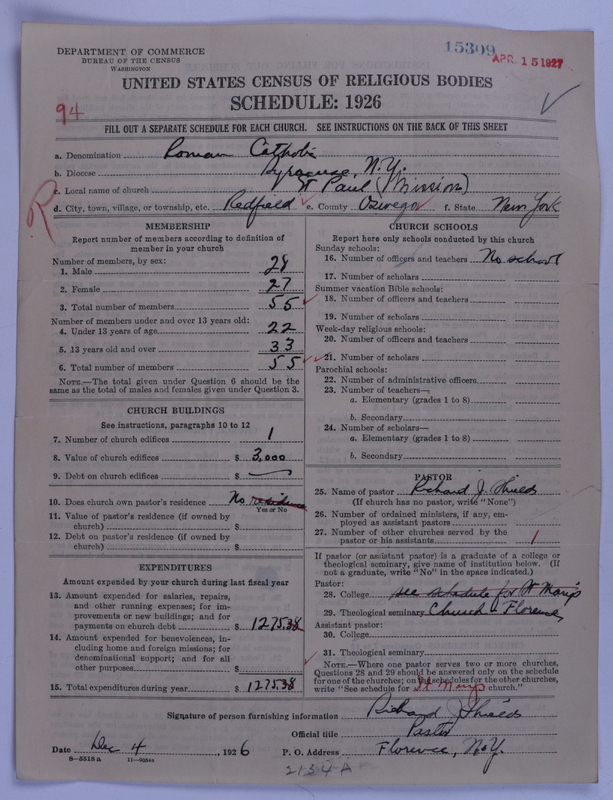 DEPARTMENT OF COMMERCE
BUREAU OF THE CENSUS
WASHINGTON
15309
APR. 15 1927
UNITED STATES CENSUS OF RELIGIOUS BODIES
SCHEDULE: 1926
94
FILL OUT A SEPARATE SCHEDULE FOR EACH CHURCH. SEE INSTRUCTIONS ON THE BACK OF THIS SHEET
a. Denomination Roman Catholic
b. Diocese Syracuse, N.Y.
c. Local name of church St Paul (Mission)
R
d. City, town, village, or township, etc. Redfield e. County Oswego f. State New York
MEMBERSHIP
Report number of members according to definition of member in your church
Number of members, by sex:
1. Male 28
2. Female 27
3. Total number of members 55
Number of members under and over 13 years old:
4. Under 13 years of age 22
5. 13 years old and over 33
6. Total number of members 55
NOTE.—The total given under Question 6 should be the same as the total of males and females given under Question 3.
CHURCH BUILDINGS
See instructions, paragraphs 10 to 12
7. Number of church edifices 1
8. Value of church edifices $ 3,000
9. Debt on church edifices $
10. Does church own pastor's residence No residence
Yes or No
11. Value of pastor's residence (if owned by church) $
12. Debt on pastor's residence (if owned by church) $
EXPENDITURES
Amount expended by your church during last fiscal year
13. Amount expended for salaries, repairs, and other running expenses; for improvements or new buildings; and for payments on church debt $ 1275.38
14. Amount expended for benevolences, including home and foreign missions; for denominational support; and for all other purposes $
15. Total expenditures during year $ 1275.38
CHURCH SCHOOLS
Report here only schools conducted by this church
Sunday schools:
16. Number of officers and teachers No school
17. Number of scholars
Summer vacation Bible schools:
18. Number of officers and teachers
19. Number of scholars
Week-day religious schools:
20. Number of officers and teachers
21. Number of scholars
Parochial schools:
22. Number of administrative officers
23. Number of teachers—
a. Elementary (grades 1 to 8)
b. Secondary
24. Number of scholars—
a. Elementary (grades 1 to 8)
b. Secondary
PASTOR
25. Name of pastor Richard J. Shields
(If church has no pastor, write "None")
26. Number of ordained ministers, if any, employed as assistant pastors
27. Number of other churches served by the pastor or his assistants 1
If pastor (or assistant pastor) is a graduate of a college or theological seminary, give name of institution below. (If not a graduate, write "No" in the space indicated.)
Pastor:
28. College see schedule for St Mary's
29. Theological seminary Church - Florence
Assistant pastor:
30. College
31. Theological seminary
NOTE.—Where one pastor serves two or more churches, Questions 28 and 29 should be answered only on the schedule for one of the churches; on the schedules for the other churches, write "See schedule for St Mary's church."
Signature of person furnishing information Richard J Shields
Official title Pastor
Date Dec 4, 1926 P. O. Address Florence, N.Y.
8—5319a 11—9054a
2134A